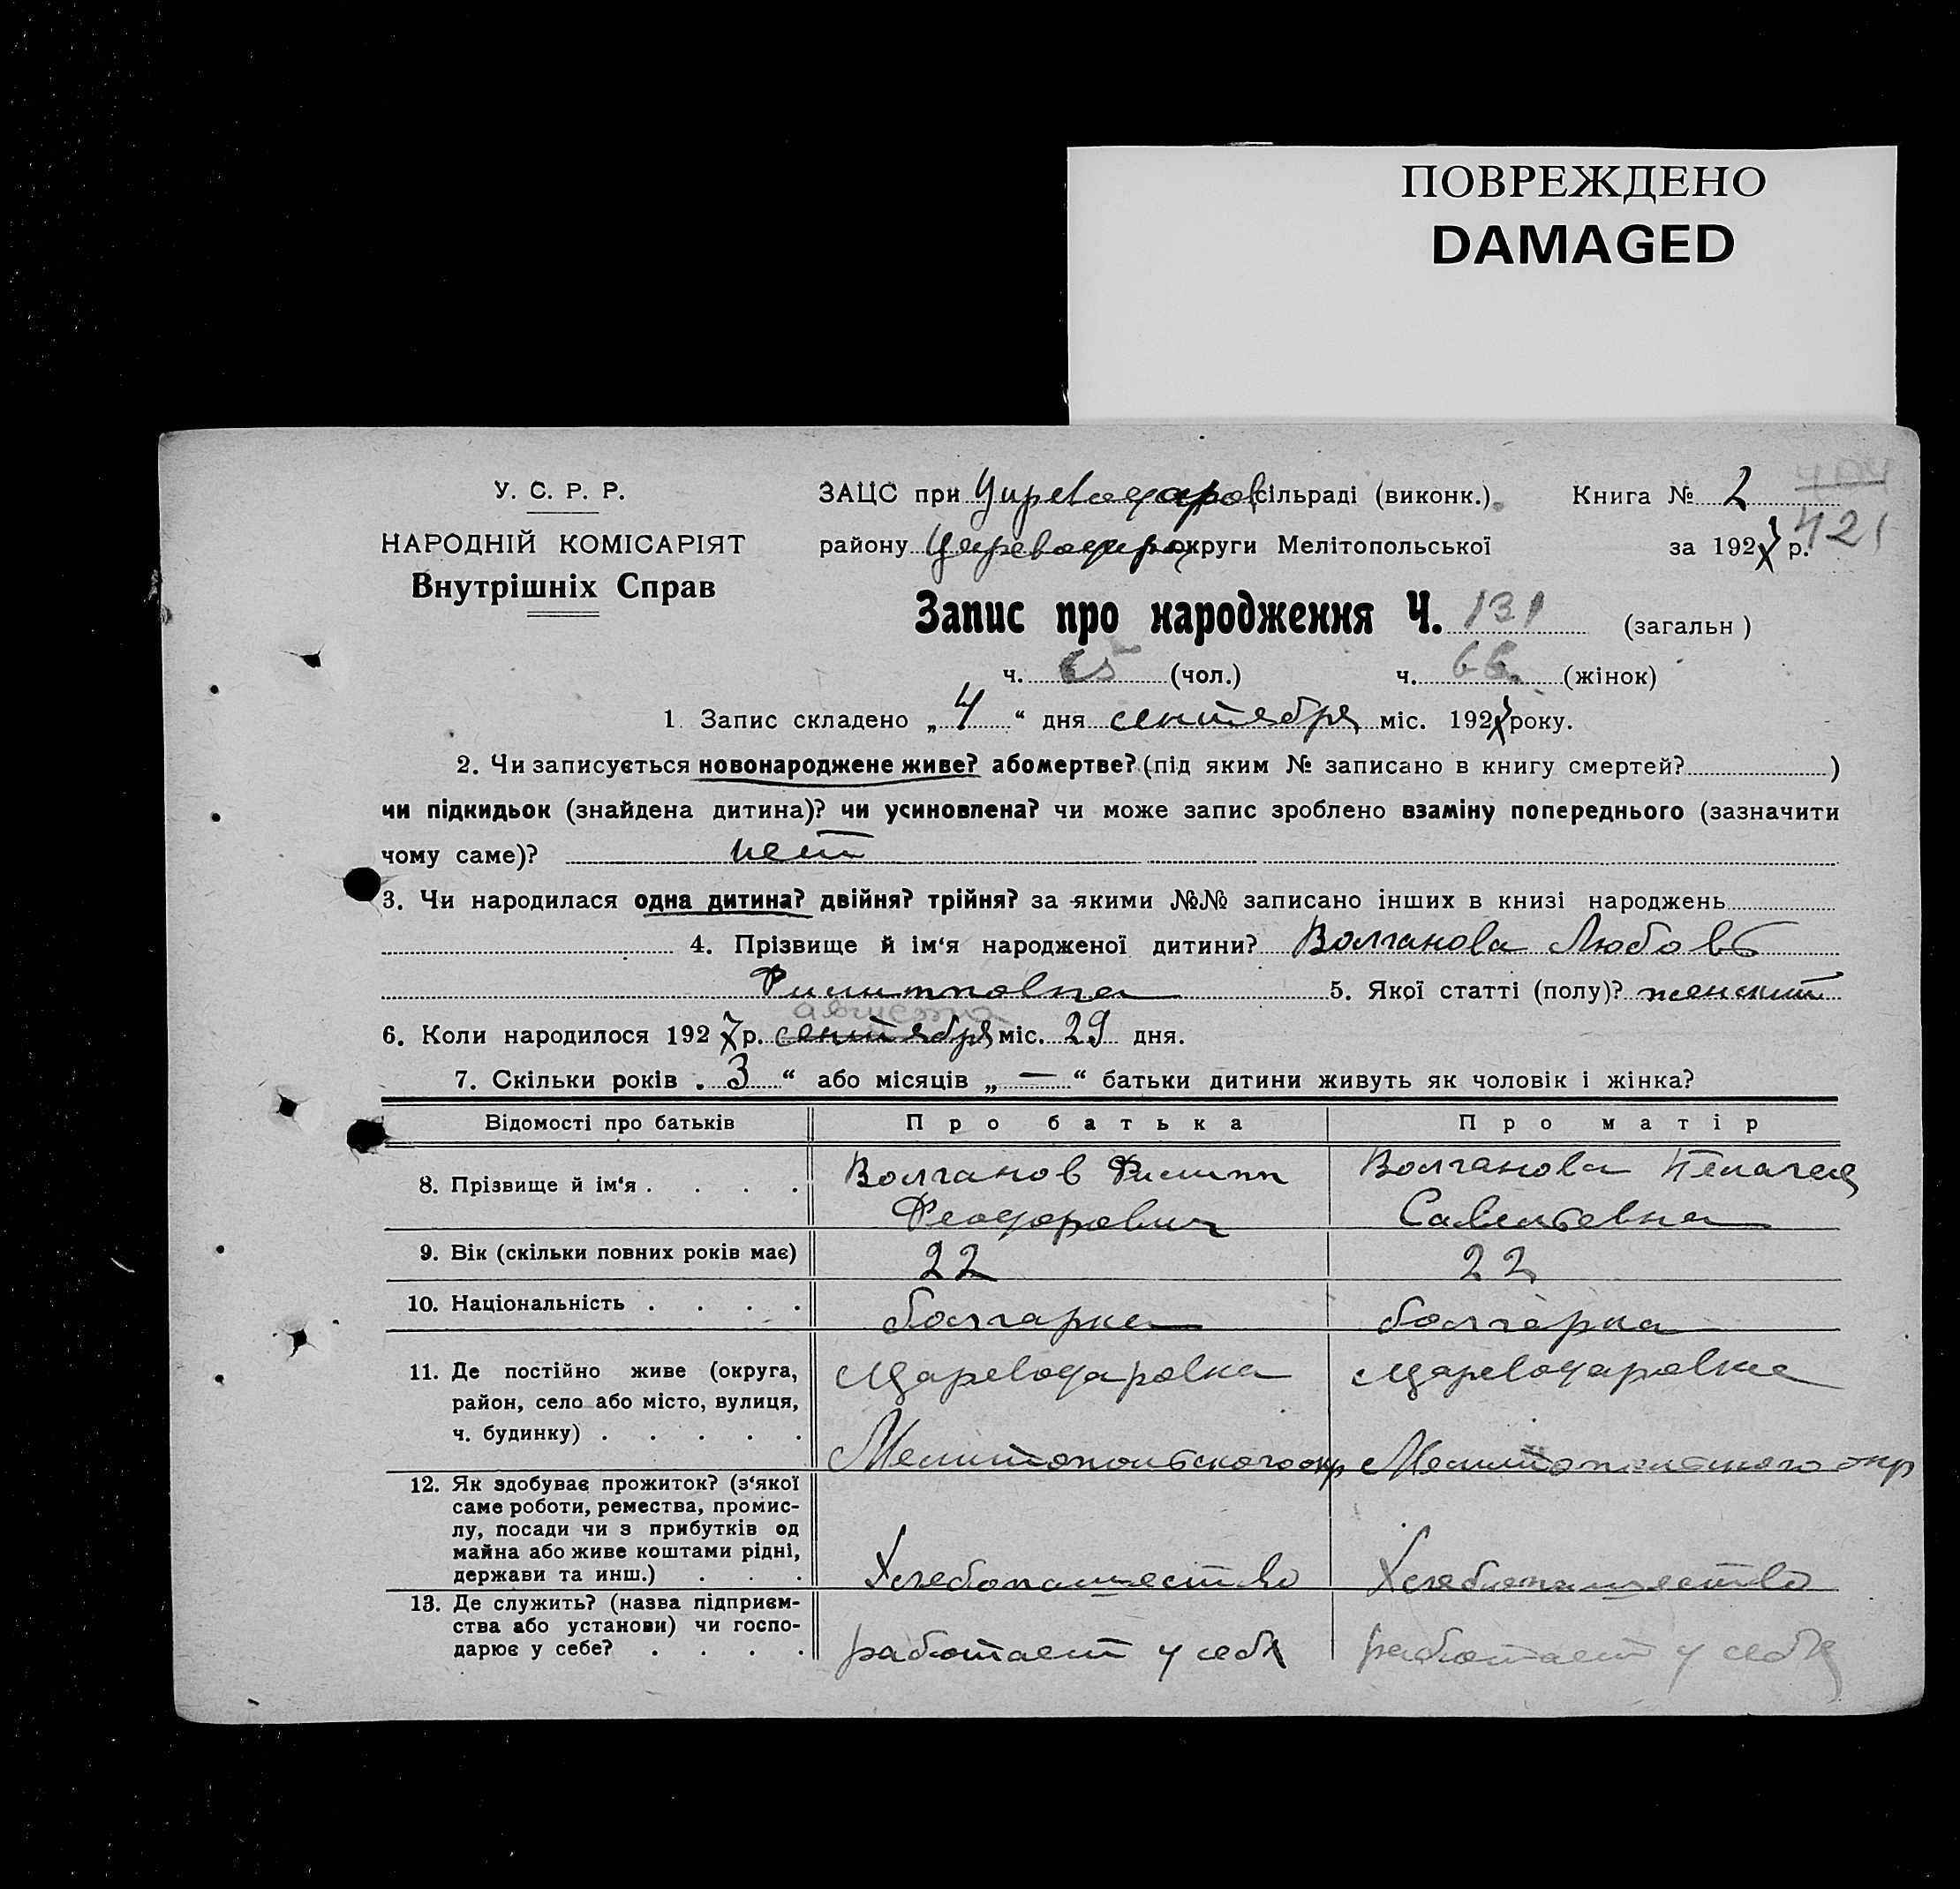 ПОВРЕЖДЕНО
DAMAGED
У. С. Р. Р.
НАРОДНІЙ КОМІСАРІЯТ
Внутрішніх Справ
ЗАЦС при Цареводаров сільраді (виконк.). Книга № 2
району Цареводар округи Мелітопольської за 1927 р.
404
421
Запис про народження Ч. 131 (загальн)
ч. 65 (чол.) ч. 66 (жінок)
1 Запис складено „ 4 “ дня сентября міс. 1927 року.
2. Чи записується новонароджене живе? або мертве? (під яким № записано в книгу смертей? )
чи підкидьок (знайдена дитина)? чи усиновлена? чи може запис зроблено взаміну попереднього (зазначити
чому саме)? нет
3. Чи народилася одна дитина? двійня? трійня? за якими №№ записано інших в книзі народжень
4. Прізвище й ім‘я народженої дитини? Волканова Любовь
Филипповна 5. Якої статті (полу)? женский
августа
6. Коли народилося 1927 р. сентября міс. 29 дня.
7. Скільки років „ 3 “ або місяців „ — “ батьки дитини живуть як чоловік і жінка?
Відомості про батьків Про батька Про матір
8. Прізвище й ім‘я . . . . Волканов Филипп Волканова Пелагея
Феодорович Савельевна
9. Вік (скільки повних років має) 22 22
10. Національність . . . . болгарка болгарка
11. Де постійно живе (округа, Цареводаровка Цареводаровка
район, село або місто, вулиця,
ч. будинку) . . . . . Мелитопольского окр Мелитопольского окр
12. Як здобуває прожиток? (з‘якої
саме роботи, ремества, промис-
лу, посади чи з прибутків од
майна або живе коштами рідні,
держави та инш.) . . . Хлебопашество Хлебопашество
13. Де служить? (назва підприєм-
ства або установи) чи госпо-
дарює у себе? . . . . работает у себя работает у себя